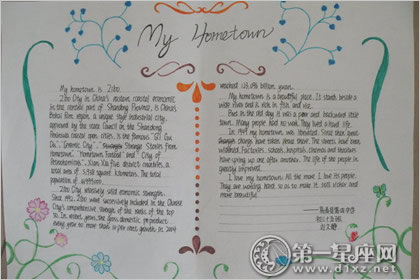 My Hometown
My hometown is Zibo.
Zibo City is China's eastern coastal economic
in the middle part of Shandong Province, is China's
Bohai Rim region, a unique style industrial city,
approved by the state Council on the Shandong
peninsula open cities, is the famous "Qi Guo
Du", "Ceramic City", Stories from
hometown", "Hometown Football" and "City of
Petrochemical", Xian Xia five district counties, a
total area of 5,938 square kilometers. The total
population of
Zibo City relatively solid economic strength.
Since 1992, Zibo were successively included in the Chinese
City's comprehensive strength of the ranks of the top
50. In recent years, the Gross domestic product
every year to more than 10 per cent growth in 2004
reached billion yuan.
My hometown is a beautiful place. It stands beside a
wide river and is rich in fish and rice.
But in the old day it was a poor and backward little
town. Many people had no work. They lived a hard life.
In 1949 my hometown was liberated. Since then great
changes have taken place there. The streets have been
widened. Factories, schools, hospitals, cinemas and theatres
have sprung up one after another. The life of the people is
greatly improved.
I love my hometown. All the more I love its people.
They are working hard so as to make it still richer
and more beautiful.
第一星座网
www.d1xz.net